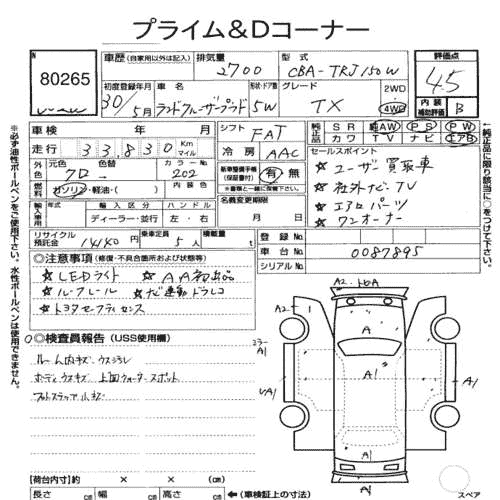 プライム&Dコーナー
N
80265
車歴 (自家用以外は記入) 排気量 2700
型式 CBA-TRJ150W
評価点 4.5
内装補助評価 B
初度登録年月 30年 5月
車名 ランドクルーザープラド
形状・ドア数 5W
グレード TX
2WD
4WD
車検 年 月
シフト FAT
純正品 SR AW PS PW
カワ TV ナビ エアB
走行 33,830 Km
冷房 AAC
セールスポイント
★ユーザー買取車
★社外ナビ、TV
★エアロパーツ
★ワンオーナー
外色 元色 クロ 色替 カラーNo. 202
新車整備手帳(保証書付) 有・無
(記入なき場合は無とみなします)
燃料 ガソリン・軽油・( ) 内装色
輸入車用 年式 輸入区分 ハンドル
ディーラー・並行 左・右
名義変更期限
月 日
リサイクル預託金 14140 円
乗車定員 5 人
積載量 t
登録No.
車台No. 0087895
シリアルNo.
◎注意事項 (修復・不具合箇所および状態等)
★LEDライト ★AA初出品
★ルーフレール ★ナビ連動ドラレコ
★トヨタセーフティセンス
◎検査員報告 (USS使用欄)
ルーム内キズ
A2
A
A1
A1
A1
A1
A1
【荷台内寸】約 × ×
長さ cm 幅 cm 高さ cm
←(車検証上の寸法)
スペア
※必ず油性ボールペンをご使用下さい。水性ボールペンは使用できません。
←純正品に限り該当に○をつけて下さい。